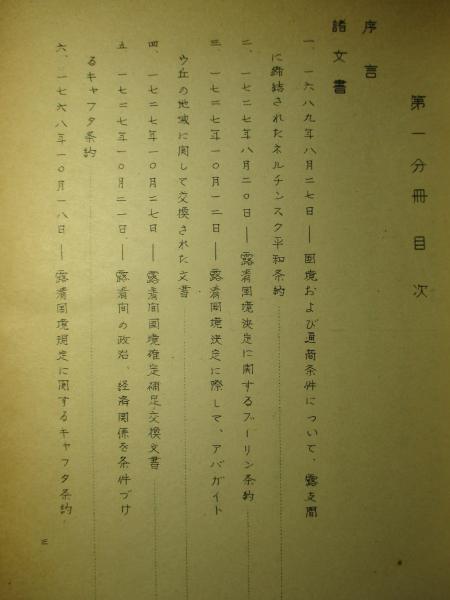 第一分冊 目次
序言
諸文書
一、一六八九年八月二七日 ── 国境および通商条件について、露支間
に締結されたネルチンスク平和条約
二、一七二七年八月二〇日 ── 露清国境決定に関するブーリン条約
三、一七二七年一〇月一二日 ── 露清国境決定に際して、アバガイト
ウ丘の地域に関して交換された文書
四、一七二七年一〇月二七日 ── 露清間国境確定補足交換文書
五、一七二七年一〇月二一日 ── 露清間の政治、経済関係を条件づけ
るキャフタ条約
六、一七六八年一〇月一八日 ── 露清国境規定に関するキャフタ条約
三